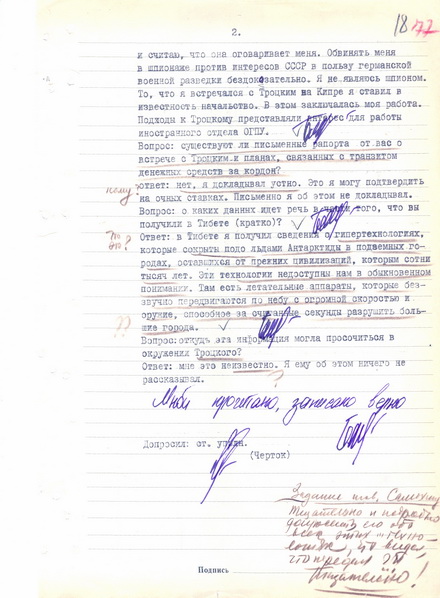 2.
18
77
и считаю, что она оговаривает меня. Обвинять меня
в шпионаже против интересов СССР в пользу германской
военной разведки бездоказательно. Я не являюсь шпионом.
То, что я встречался с Троцким на Кипре я ставил в
известность начальство. В этом заключалась моя работа.
Подходы к Троцкому представляли интерес для работы
иностранного отдела ОГПУ.
Вопрос: существуют ли письменные рапорта от вас о
встрече с Троцким и планах, связанных с транзитом
денежных средств за кордон?
кому?
ответ: нет, я докладывал устно. Это я могу подтвердить
на очных ставках. Письменно я об этом не докладывал.
Вопрос: о каких данных идет речь в том, что вы
получили в Тибете (кратко)?
Ответ: в Тибете я получил сведения о гипертехнологиях,
которые сокрыты подо льдами Антарктиды в подземных го-
родах, оставшихся от древних цивилизаций, которым сотни
тысяч лет. Эти технологии недоступны нам в обыкновенном
понимании. Там есть летательные аппараты, которые без-
звучно передвигаются по небу с огромной скоростью и
оружие, способное за считанные секунды разрушить боль-
шие города.
??
Вопрос: откуда эта информация могла просочиться в
окружении Троцкого?
Ответ: мне это неизвестно. Я ему об этом ничего не
рассказывал.
?
Мной прочитано, записано верно
Допросил: ст. уполн.
(Черток)
Задание
тщательно и подробно
его обо
всех этих
Тщательно!
Подпись